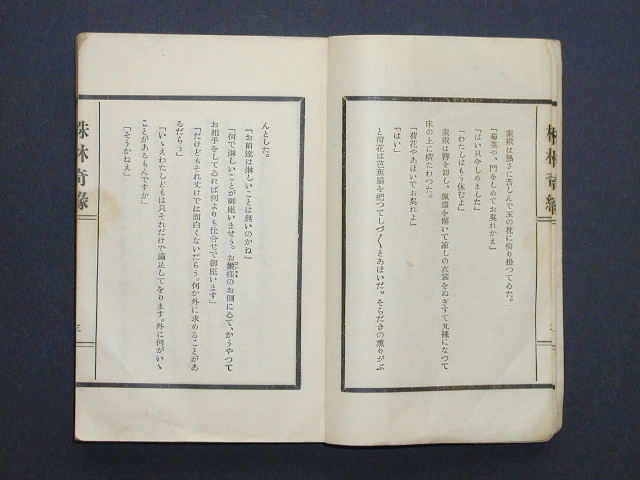 株林奇縁
素娥は熱さに苦しんで玉の枕に倚り掛つてゐた。
「菊英や、門をしめてお呉れかえ」
「はい只今しめました」
「わたしはもう休むよ」
素娥は簪を卸し、珮環を解いて凉しの衣裳をぬぎすて丸裸になつて
床の上に横たわつた。
「荷花やあほいでお呉れよ」
「はい」
と荷花は芭蕉扇を把つてしづ〳〵とあほいだ。そらだきの薫りがぷ
んとした。
「お前達は淋しいことは無いのかね」
「何で淋しいことが御座いませう。お孃樣のお側にゐて、かうやつて
お相手をしてゐれば何よりも仕合せで御座います」
「だけどもそれ丈けでは面白くないだらう。何か外に求めることがあ
るだらう」
「いゝえわたしどもは只それだけで滿足してをります。外に何がいゝ
ことがあるもんですか」
「そうかねえ」
株林奇縁
三